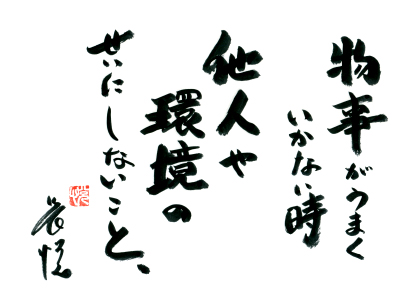 物事がうまく
いかない時
他人や
環境の
せいにしないこと、